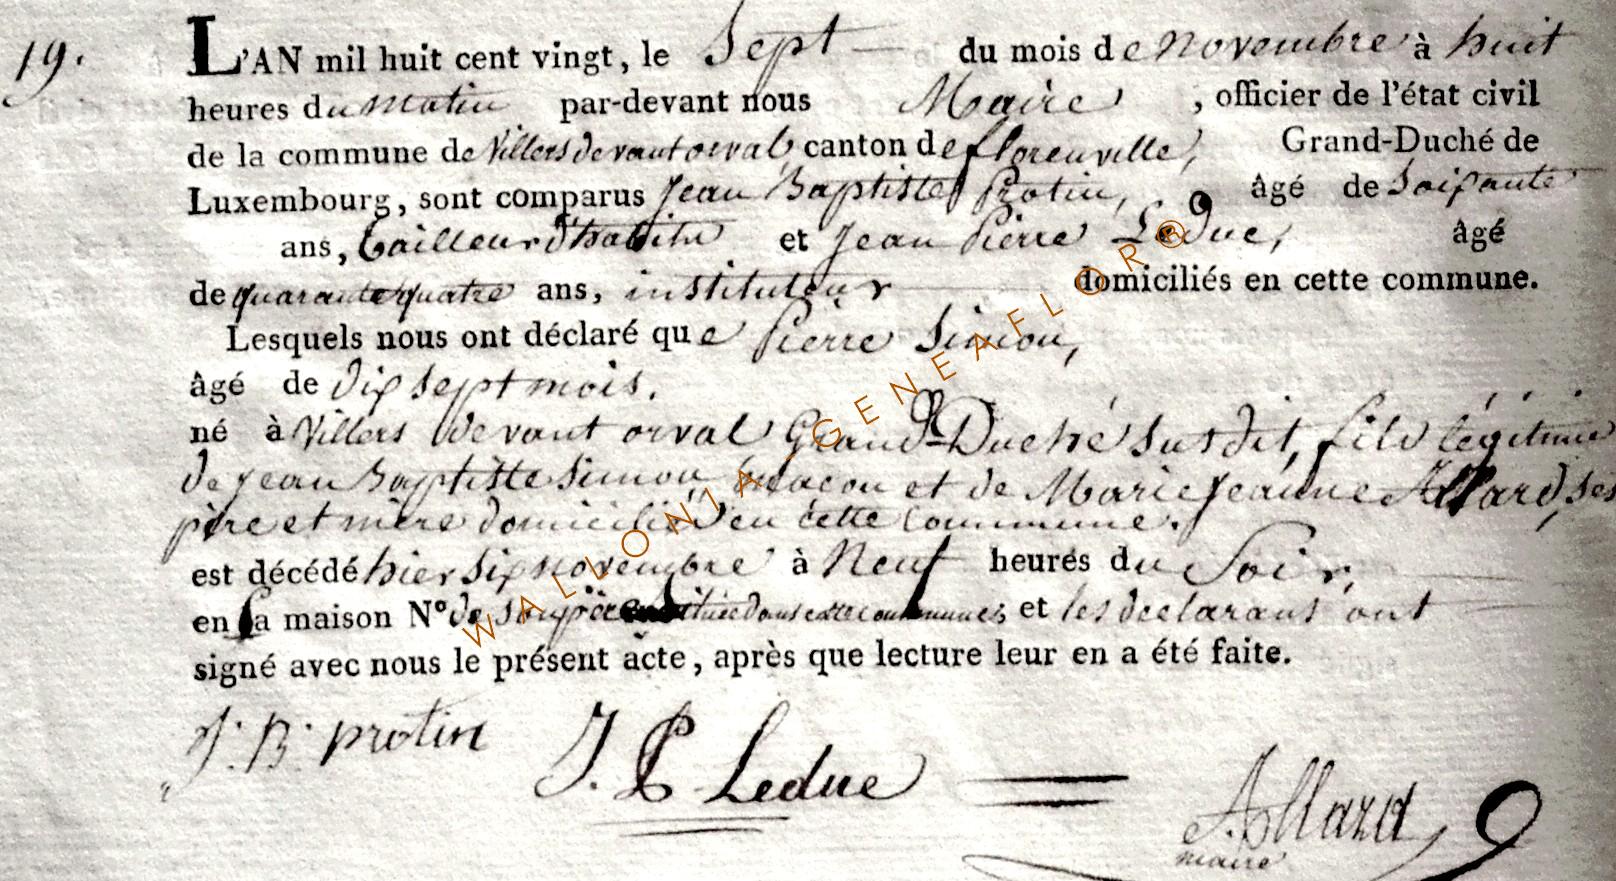 19.
L'AN mil huit cent vingt, le Sept du mois de Novembre à huit
heures du matin par-devant nous Maire , officier de l'état civil
de la commune de Villers devant orval, canton de florenville, Grand-Duché de
Luxembourg, sont comparus Jean Baptiste Protin, âgé de Soixante
ans, tailleur d'habits et Jean Pierre Leduc, âgé
de quarante quatre ans, instituteur domiciliés en cette commune.
Lesquels nous ont déclaré que Pierre Simon,
âgé de dix sept mois.
né à Villers devant orval Grand-Duché susdit, fils légitime
de Jean Baptiste Simon maçon et de Marie Jeanne Allard, ses
père et mère domiciliés en cette Commune.
est décédé hier six novembre à Neuf heures du Soir,
en la maison N° de son père située dans cette commune, et les déclarans ont
signé avec nous le présent acte, après que lecture leur en a été faite.
J. B. protin J. P. Leduc Allard
maire
WALLONIA - GENEAFLOR®